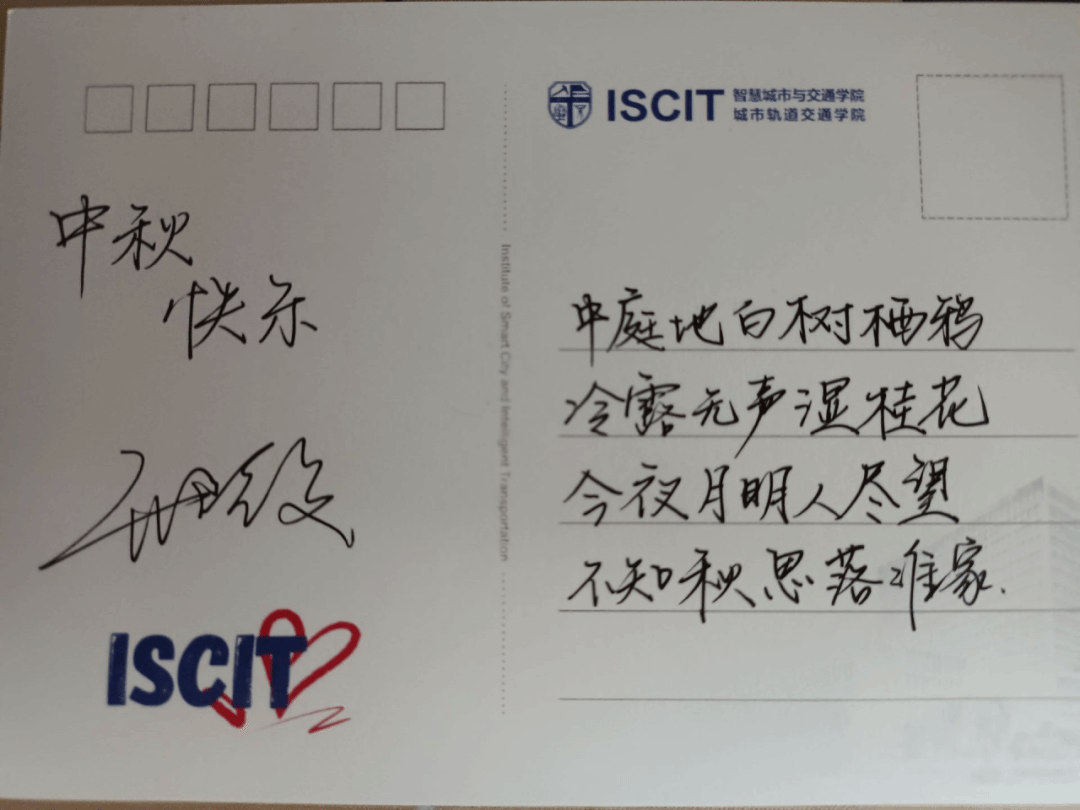 中秋
快乐
ISCIT
Institute of Smart City and Intelligent Transportation
ISCIT 智慧城市与交通学院
城市轨道交通学院
中庭地白树栖鸦
冷露无声湿桂花
今夜月明人尽望
不知秋思落谁家.